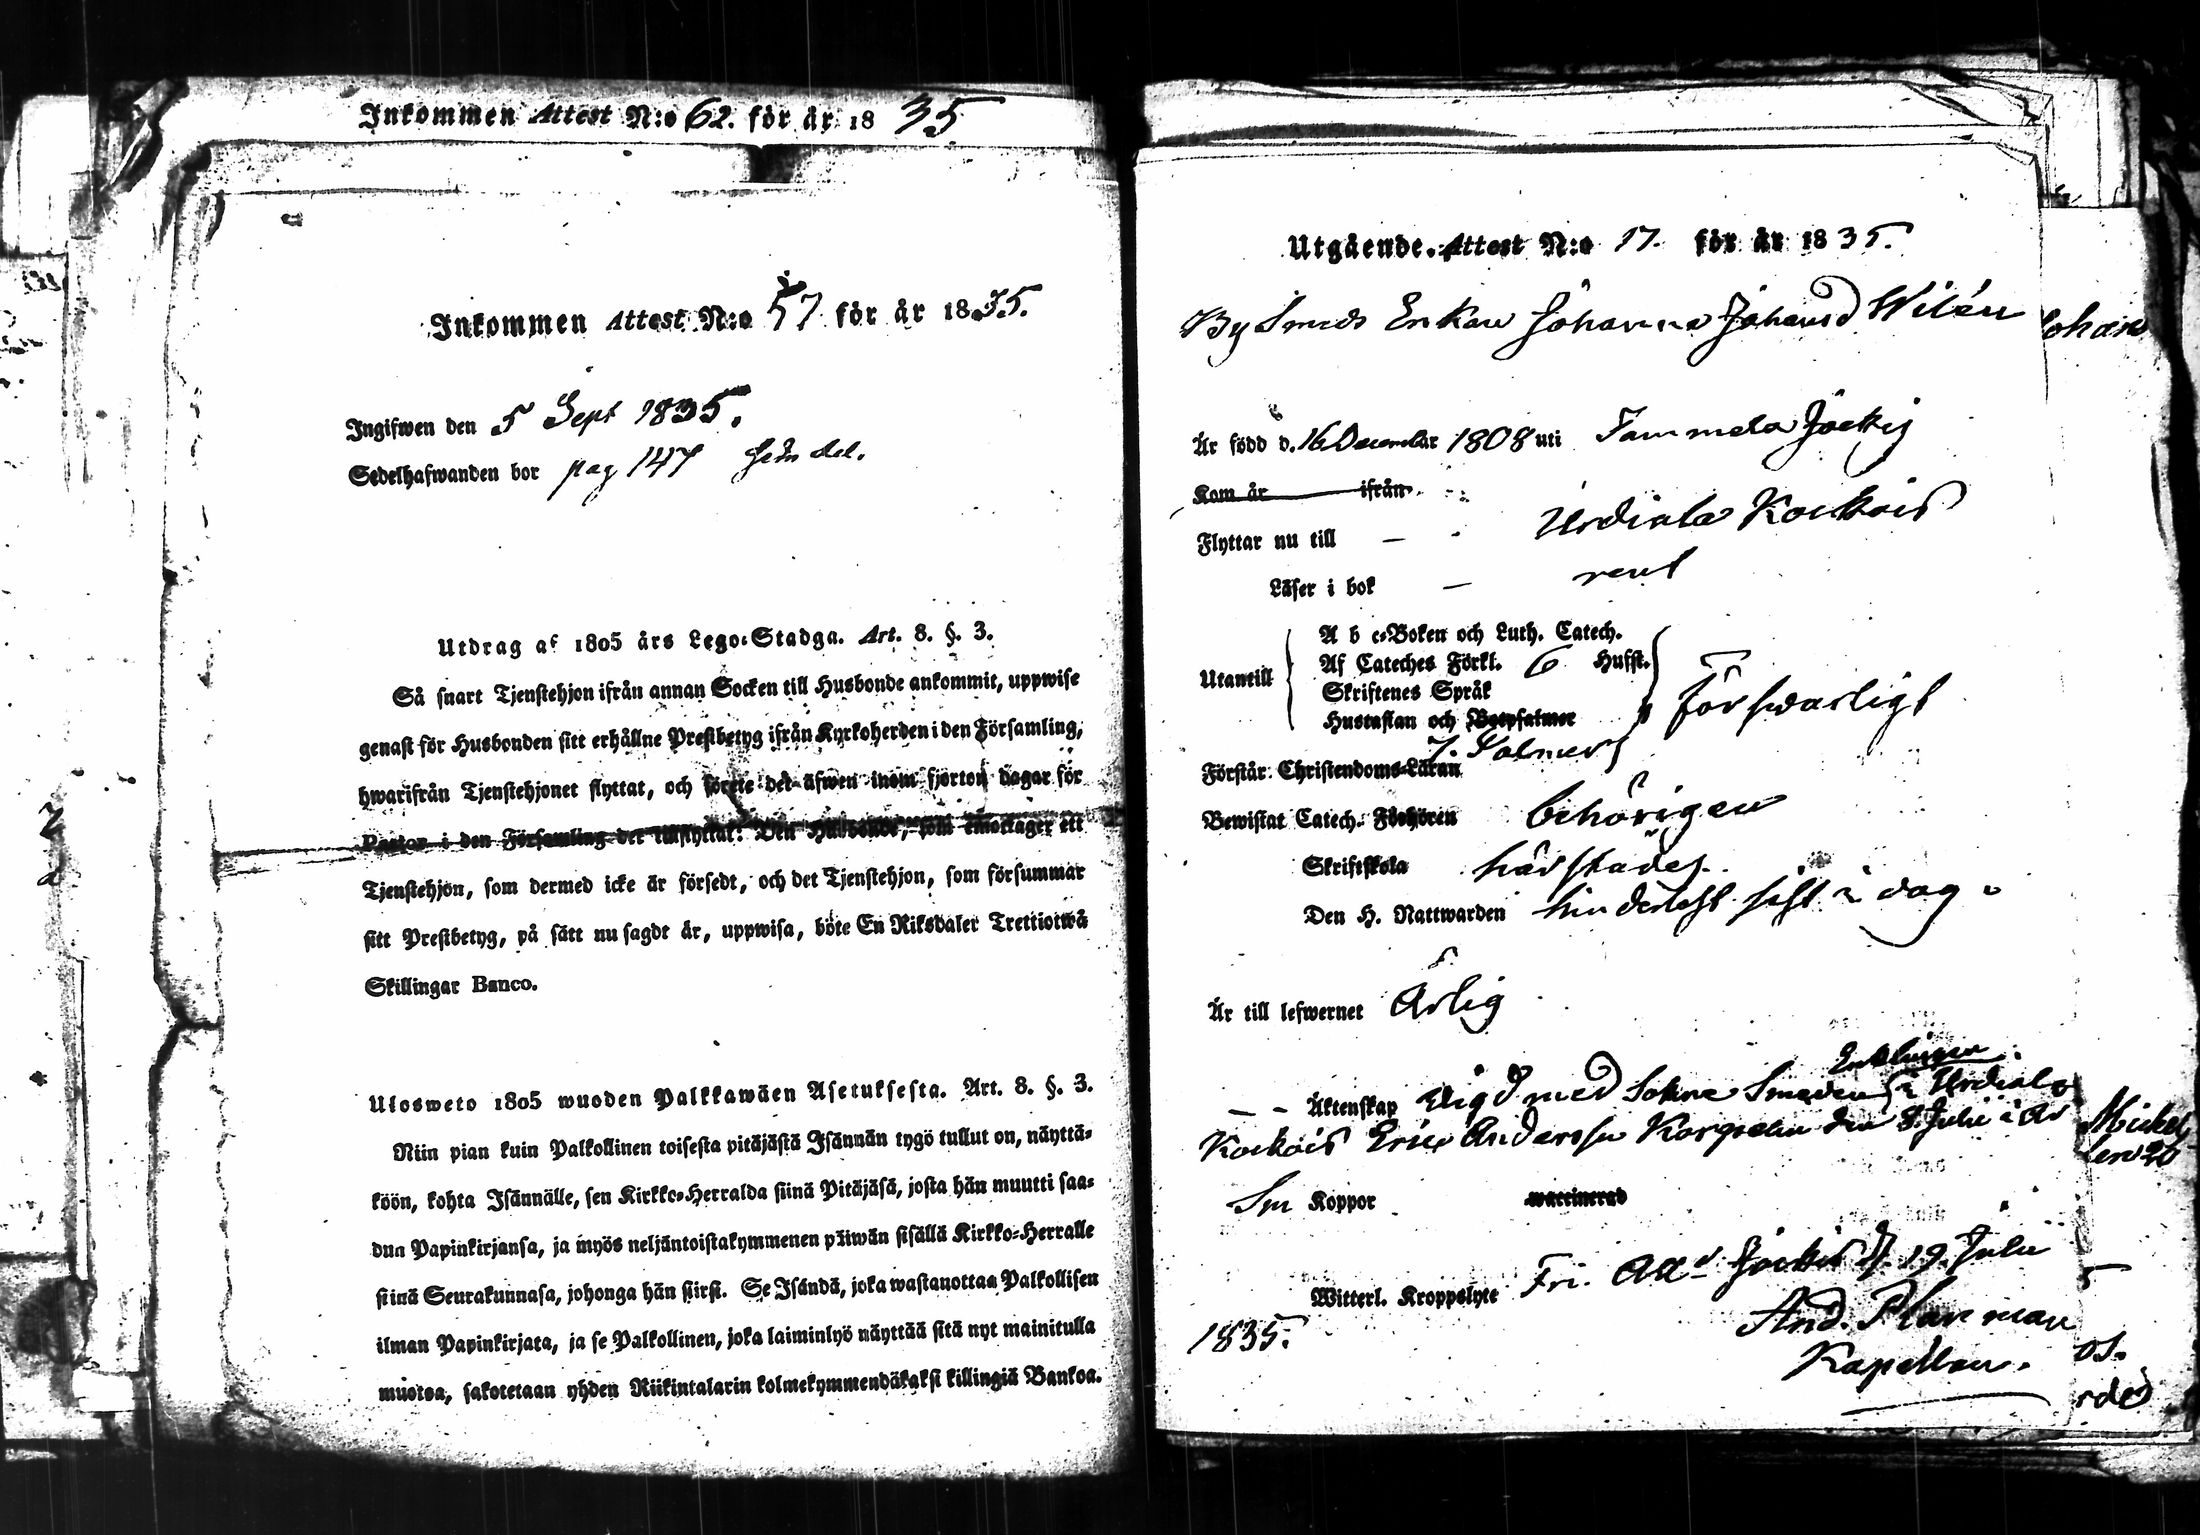 Inkommen Attest N:o 62. för år 1835
Inkommen Attest N:o 57 för år 1835.
Ingifwen den 5 Sept 1835.
Sedelhafwanden bor pag 147
Utdrag af 1805 års Lego-Stadga. Art. 8. §. 3.
Så snart Tjenstehjon ifrån annan Socken till Husbonde ankommit, uppwise
genast för Husbonden sitt erhållne Prestbetyg ifrån Kyrkoherden i den Församling,
hwarifrån Tjenstehjonet flyttat, och förete det äfwen inom fjorton dagar för
Pastor i den Församling det tillflyttat. Den Husbonde, som emottager ett
Tjenstehjon, som dermed icke är försedt, och det Tjenstehjon, som försummar
sitt Prestbetyg, på sätt nu sagdt är, uppwisa, böte En Riksdaler Trettiotwå
Skillingar Banco.
Ulosweto 1805 wuoden Palkkawäen Asetuksesta. Art. 8. §. 3.
Niin pian kuin Palkollinen toisesta pitäjästä Isännän tygö tullut on, näyttä-
köön, kohta Isännälle, sen Kirkko-Herralda siinä Pitäjäsä, josta hän muutti saa-
dun Papinkirjansa, ja myös neljäntoistakymmenen päiwän sisällä Kirkko-Herralle
siinä Seurakunnasa, johonga hän siirst. Se Isändä, joka wastanottaa Palkollisen
ilman Papinkirjata, ja se Palkollinen, joka laiminlyö näyttää sitä nyt mainitulla
muotoa, sakotetaan yhden Riikintalarin kolmekymmendäkaksi killingiä Bankoa.
Utgående. Attest N:o 17. för år 1835.
By Smeds Enkan Johanna Johansd Wilén
Är född d. 16 December 1808 uti Tammela Jockis
Kom år ifrån
Flyttar nu till — Urdiala Kockois
Läser i bok — rent
Utantill
A b c-Boken och Luth. Catech.
Af Cateches Förkl. 6 Hufst.
Skriftenes Språk
Hustaflan och Botpsalmer
7. Salmer
försvarligt
Förstår Christendoms-Läran
Bewistat Catech. Förhören behörigen
Skriftskola härstädes.
Den H. Nattwarden sist i dag
Är till lefwernet Ärlig
Enklingen
— — Äktenskap Vigd med Sokne Smeden i Urdiala
Kockois Eric Andersson Korpelin den 8. Julii i År
Sm Koppor waccinerad
Witterl. Kroppslyte Fri. Att. Jockis d. 19. Julii
1835.
And. Planman
Kapellan.
Johan
Mickel